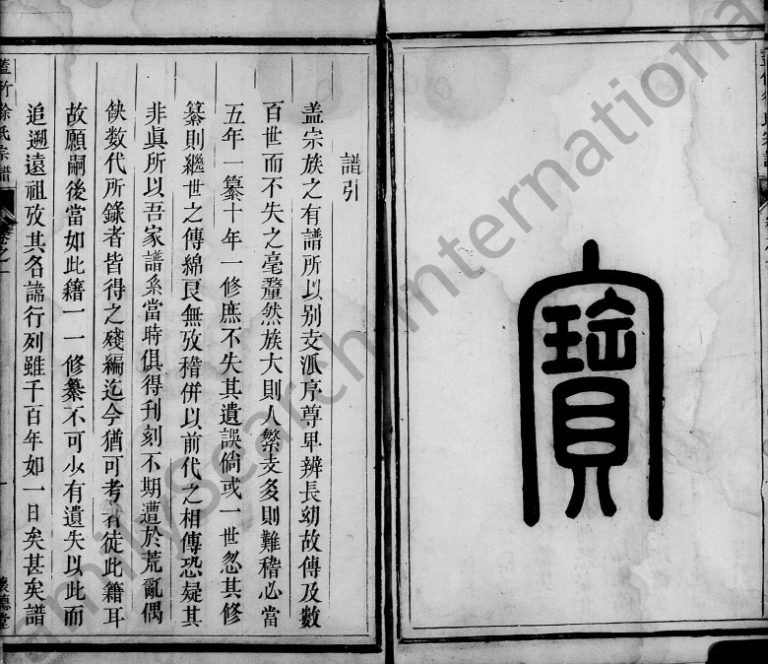 寶
譜引
盖宗族之有譜所以别支派序尊卑辨長幼故傳及數
百世而不失之毫釐然族大則人繁支多則難稽必當
五年一纂十年一修庶不失其遺誤倘或一世忽其修
纂則繼世之傳綿艮無攷稽併以前代之相傳恐疑其
非眞所以吾家譜系當時俱得刊刻不期遭於荒亂偶
缺数代所錄者皆得之殘編迄今猶可考者徒此籍耳
故願嗣後當如此籍一一修纂不可少有遺失以此而
追遡遠祖攷其名諱行列雖千百年如一日矣甚矣譜
盖竹徐氏宗譜
卷之一
懷德堂
familysearch international